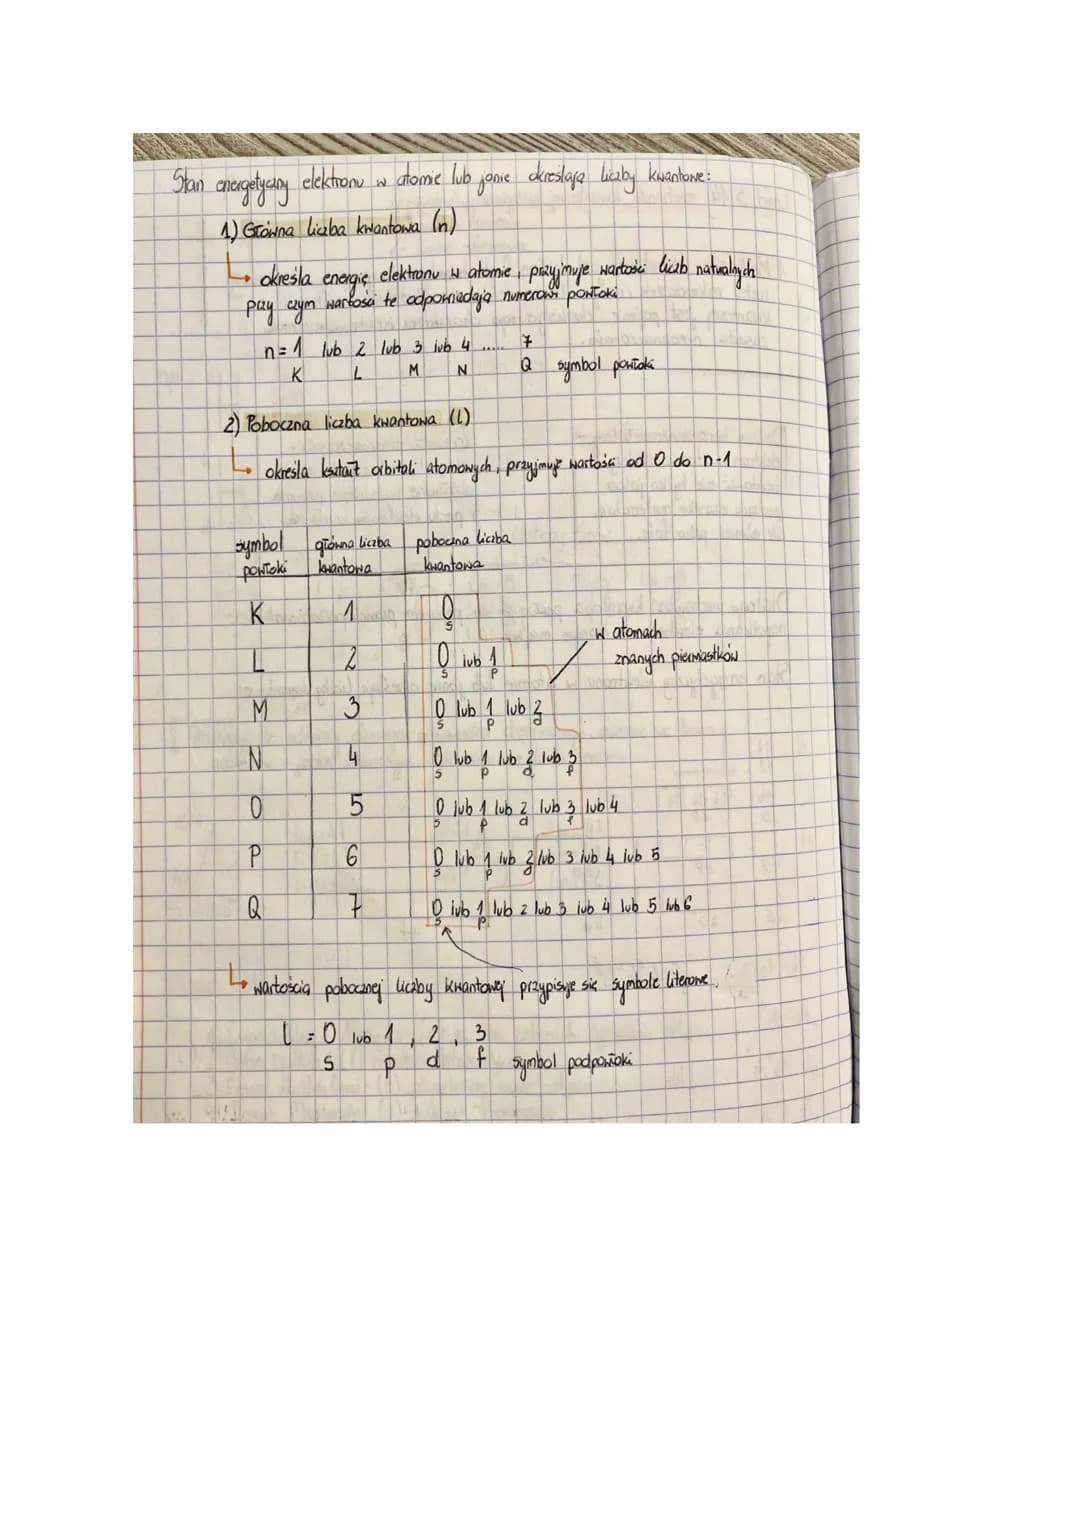 Stan energetyczny elektronu w atomie lub jonie określają liczby kwantowe:
1) Główna liczba kwantowa (n)
określa energię elektronu w atomie, przyjmuje wartości liczb naturalnych
przy czym wartości te odpowiedają numerowi powłoki
n = 1 lub 2 lub 3 lub 4 ..... 7
K L M N Q symbol powłoki
2) Poboczna liczba kwantowa (l)
określa kształt orbitali atomowych, przyjmuje wartości od 0 do n-1
symbol główna liczba poboczna liczba
powłoki kwantowa kwantowa
K 1 0
s
w atomach
L 2 0 lub 1 znanych pierwiastków
s p
M 3 0 lub 1 lub 2
s p d
N 4 0 lub 1 lub 2 lub 3
s p d f
O 5 0 lub 1 lub 2 lub 3 lub 4
s p d f
P 6 0 lub 1 lub 2 lub 3 lub 4 lub 5
s p d
Q 7 0 lub 1 lub 2 lub 3 lub 4 lub 5 lub 6
s p
wartością pobocznej liczby kwantowej przypisuje się symbole literowe.
l = 0 lub 1, 2, 3
s p d f symbol podpowłoki